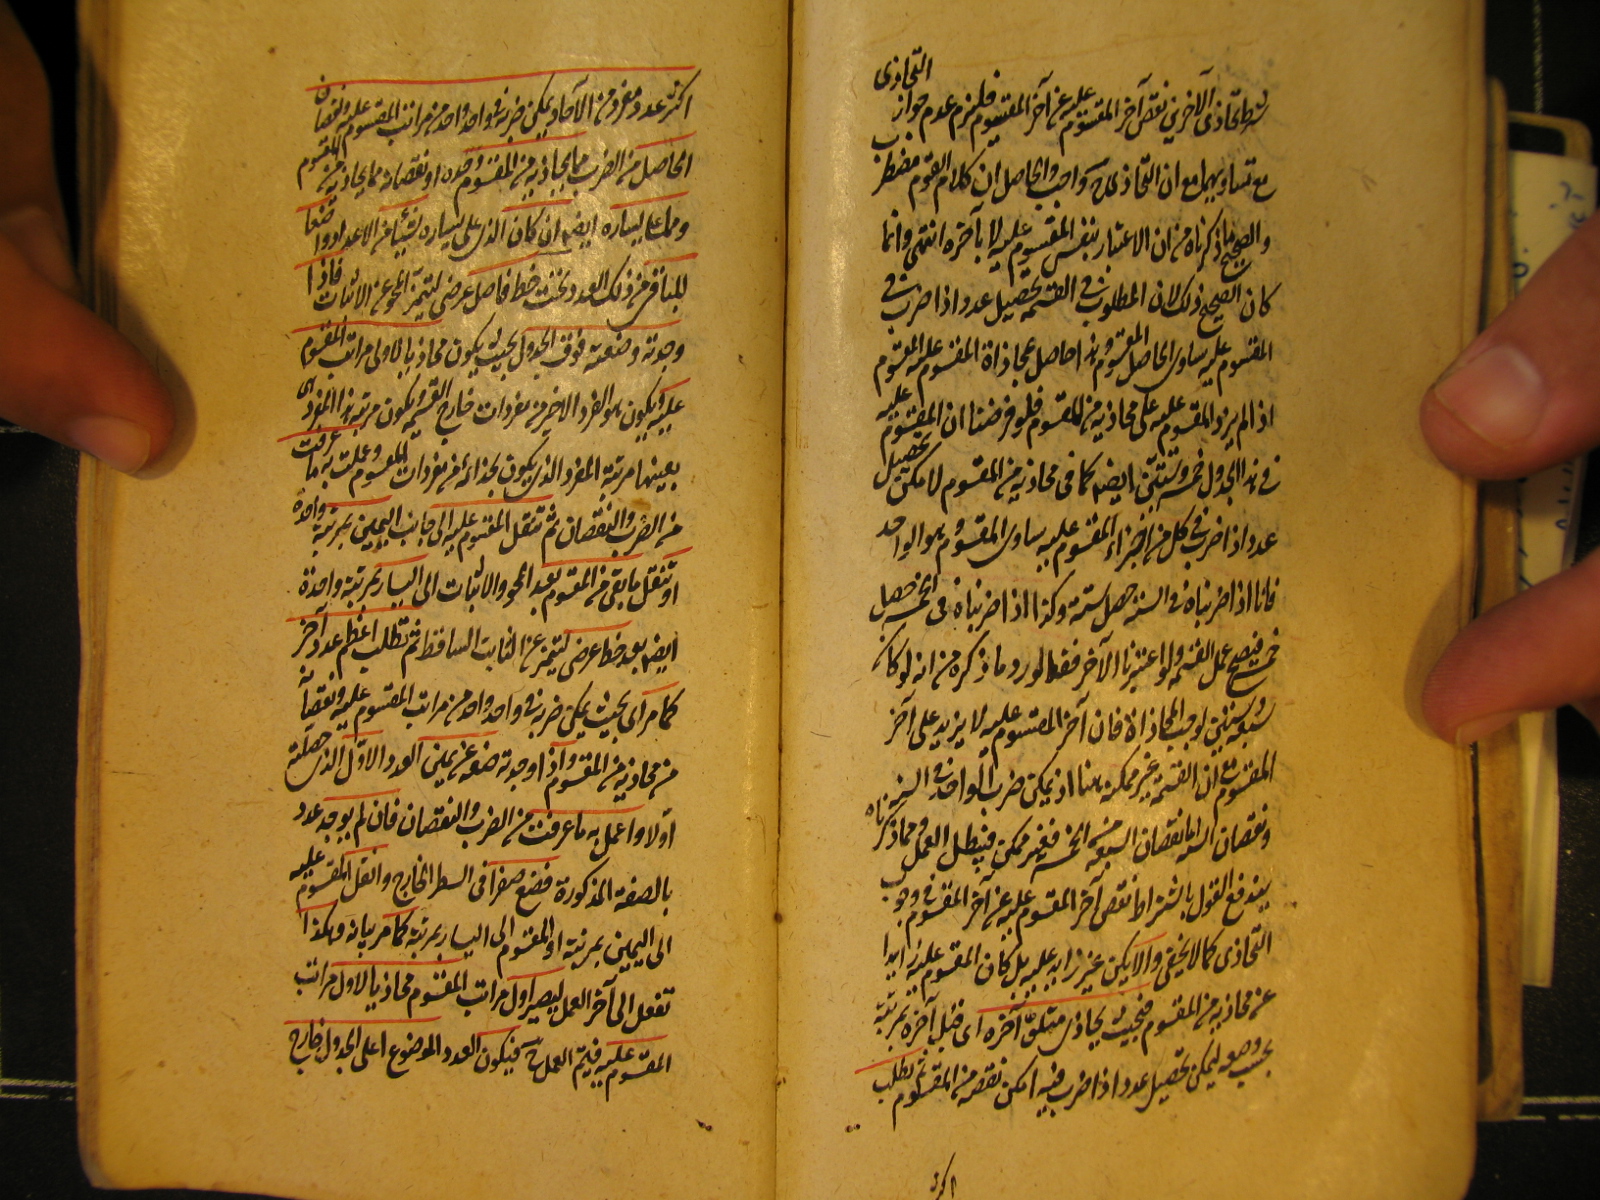 التحاذى
بشرط تحاذى الآخرين نقص آخر المقسوم عليه عن آخر المقسوم فلزم عدم جواز
مع تساويهما مع ان التحاذى ح واجب والحاصل ان كلام القوم مضطرب
والصحيح ما ذكرناه من ان الاعتبار بنفس المقسوم عليه لا بآخره انتهى وانما
كان الصحيح ذلك لان المطلوب فى القسمة تحصيل عدد اذا ضرب فى
المقسوم عليه ساوى الحاصل المقسوم وهذا حاصل بمحاذاة المقسوم عليه للمقسوم
اذا لم يزد المقسوم عليه على محاذيه من المقسوم فلو فرضنا ان المقسوم عليه
فى هذا الجدول خمسة وستين ايضا كما فى محاذيه من المقسوم لا مكن تحصيل
عدد اذا ضرب فى كل من اجزاء المقسوم عليه يساوى المقسوم وهو الواحد
فانا اذا ضربناه فى الستة حصل ستة وكذا اذا ضربناه فى الخمسة حصل
خمسة فيصح عمل القسمة ولو اعتبرنا الآخر فقط لورد ما ذكره من انه لو كان
سبعة وستين لوجب المحاذاة فان آخر المقسوم عليه لا يزيد على آخر
المقسوم مع ان القسمة غير ممكنة هنا اذ يمكن ضرب الواحد فى الستة
ونقصان الستة اما نقصان السبعة من الخمسة فغير ممكن فيبطل العمل ومما ذكرناه
يندفع القول باشتراط نقص آخر المقسوم عليه عن آخر المقسوم فى وجوب
التحاذى كما لا يخفى والا يكن غير زايد عليه بل كان المقسوم عليه زايدا
عن محاذيه من المقسوم فبحيث يحاذى متلو آخره اى قبل آخره بمرتبة
بحسب وضعه ليمكن تحصيل عدد اذا ضرب فيه امكن نقصه من المقسوم ثم تطلب
اكثر
اكثر عدد مفرد من الآحاد يمكن ضربه فى واحد واحد من مراتب المقسوم عليه ونقصان
الحاصل من الضرب مما يحاذيه من المقسوم وحده او نقصانه مما يحاذيه من المقسوم
ومما على يساره ايضا ان كان الذى على يساره شيئا من الاعداد واضعا
للباقى من ذلك العدد تحت خط فاصل عرضى لتميز المحو عن الاثبات فاذا
وجدته وضعته فوق الجدول بحيث يكون محاذيا لاولى مراتب المقسوم
عليه ويكون هو المفرد الاخير من مفردات خارج القسمة ويكون مرتبة هذا المفرد هى
بعينها مرتبة المفرد الذى يكون بحذائه من مفردات المقسوم وعملت به ما عرفت
من الضرب والنقصان ثم تنقل المقسوم عليه الى جانب اليمين بمرتبة واحدة
او تنقل ما بقى من المقسوم بعد المحو والاثبات الى اليسار بمرتبة واحدة
ايضا بعد خط عرضى لتميز عن الثابت الساقط ثم تطلب اعظم عدد آخر
كما مر اى بحيث يمكن ضربه فى واحد واحد من مراتب المقسوم عليه ونقصانه
من محاذيه من المقسوم واذا وجدته ضعه عن يمين العدد الاول الذى حصلته
اولا واعمل به ما عرفت من الضرب والنقصان فان لم يوجد عدد
بالصفة المذكورة فضع صفرا فى السطر الخارج وانقل المقسوم عليه
الى اليمين بمرتبة او المقسوم الى اليسار بمرتبة كما مر بيانه وهكذا
تفعل الى آخر العمل ليصير اول مراتب المقسوم محاذيا لاول مراتب
المقسوم عليه فيتم العمل ح فيكون العدد الموضوع اعلى الجدول خارج